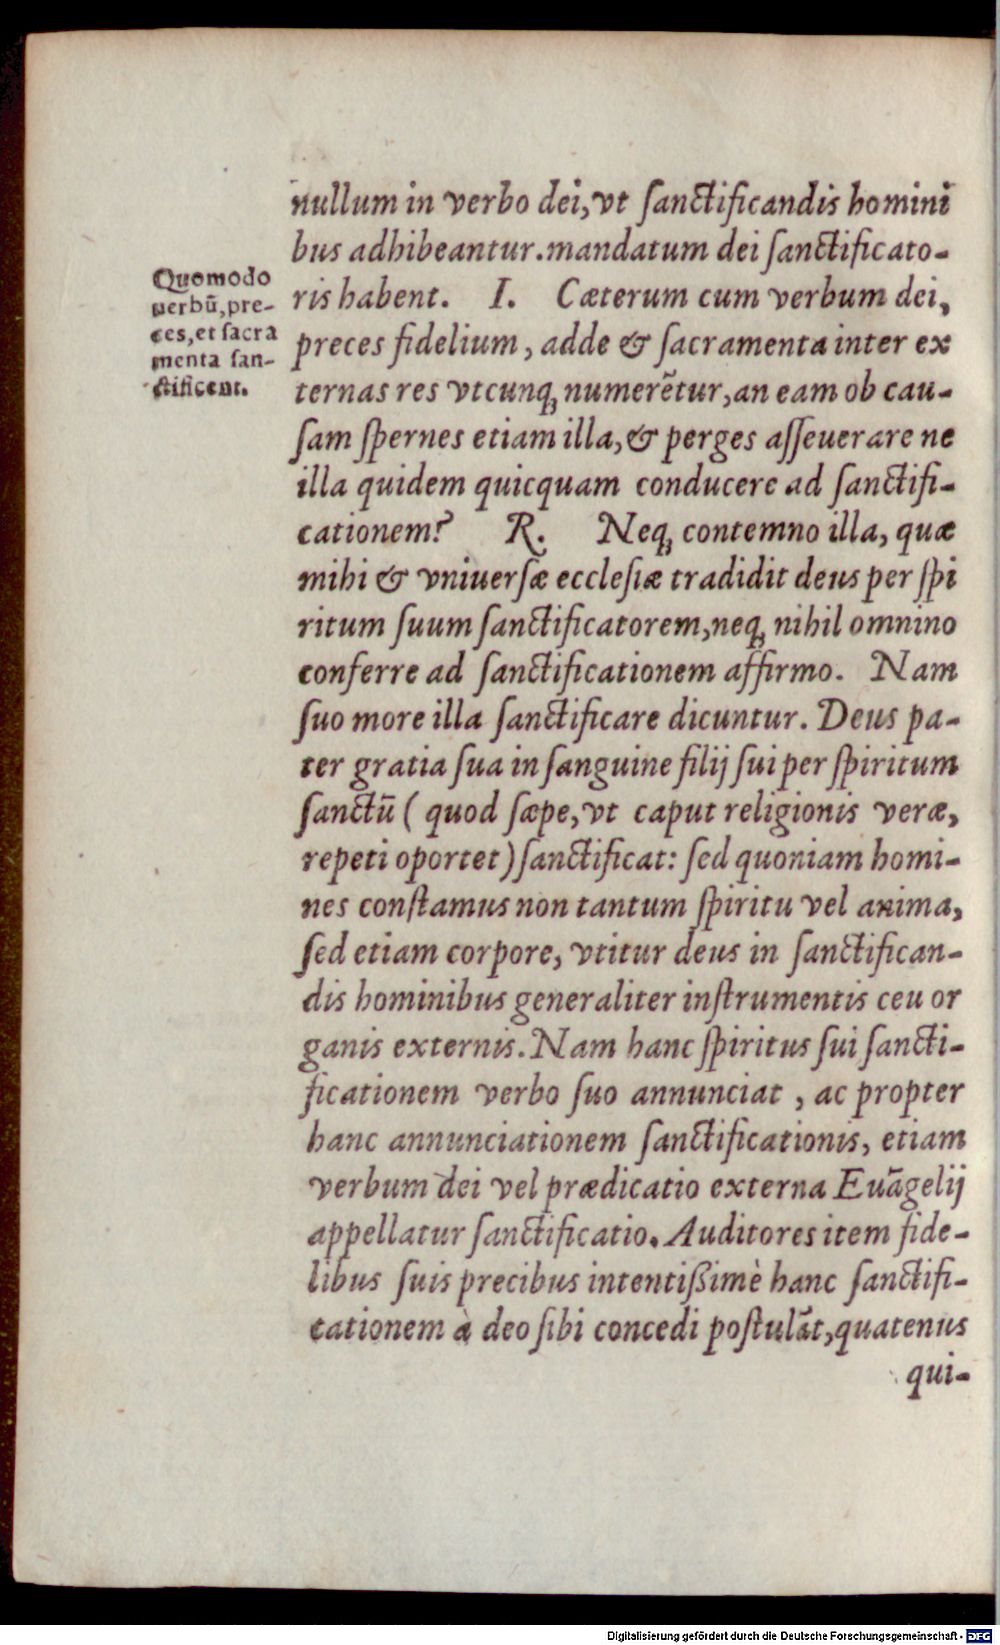 nullum in verbo dei, vt ſanctificandis homini
bus adhibeantur. mandatum dei ſanctificato-
ris habent. I. Cæterum cum verbum dei,
preces fidelium, adde & ſacramenta inter ex
ternas res vtcunq; numerẽtur, an eam ob cau-
ſam ſpernes etiam illa, & perges aſſeuerare ne
illa quidem quicquam conducere ad ſanctifi-
cationem? R. Neq; contemno illa, quæ
mihi & vniuerſæ eccleſiæ tradidit deus per ſpi
ritum ſuum ſanctificatorem, neq; nihil omnino
conferre ad ſanctificationem affirmo. Nam
ſuo more illa ſanctificare dicuntur. Deus pa-
ter gratia ſua in ſanguine filij ſui per ſpiritum
ſanctũ ( quod ſæpe, vt caput religionis veræ,
repeti oportet) ſanctificat: ſed quoniam homi-
nes conſtamus non tantum ſpiritu vel anima,
ſed etiam corpore, vtitur deus in ſanctifican-
dis hominibus generaliter inſtrumentis ceu or
ganis externis. Nam hanc ſpiritus ſui ſancti-
ficationem verbo ſuo annunciat , ac propter
hanc annunciationem ſanctificationis, etiam
verbum dei vel prædicatio externa Euãgelij
appellatur ſanctificatio. Auditores item fide-
libus ſuis precibus intentißimè hanc ſanctifi-
cationem à deo ſibi concedi poſtulãt, quatenus
qui-
Quomodo
uerbũ, pre-
ces, et ſacra
menta ſan-
ctificent.
Digitalisierung gefördert durch die Deutsche Forschungsgemeinschaft - DFG